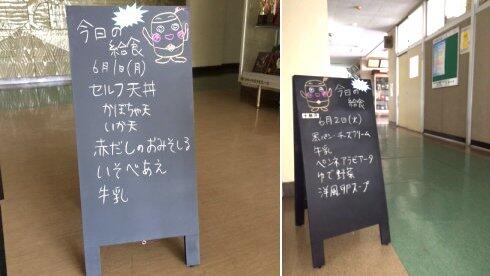 今日の
給食
6月1日(月)
セルフ天丼
かぼちゃ天
いか天
赤だしのおみそしる
いそべあえ
牛乳
今日の
給食
6月2日(火)
黒パン・チーズクリーム
牛乳
ペンネアラビアータ
ゆで野菜
洋風卵スープ